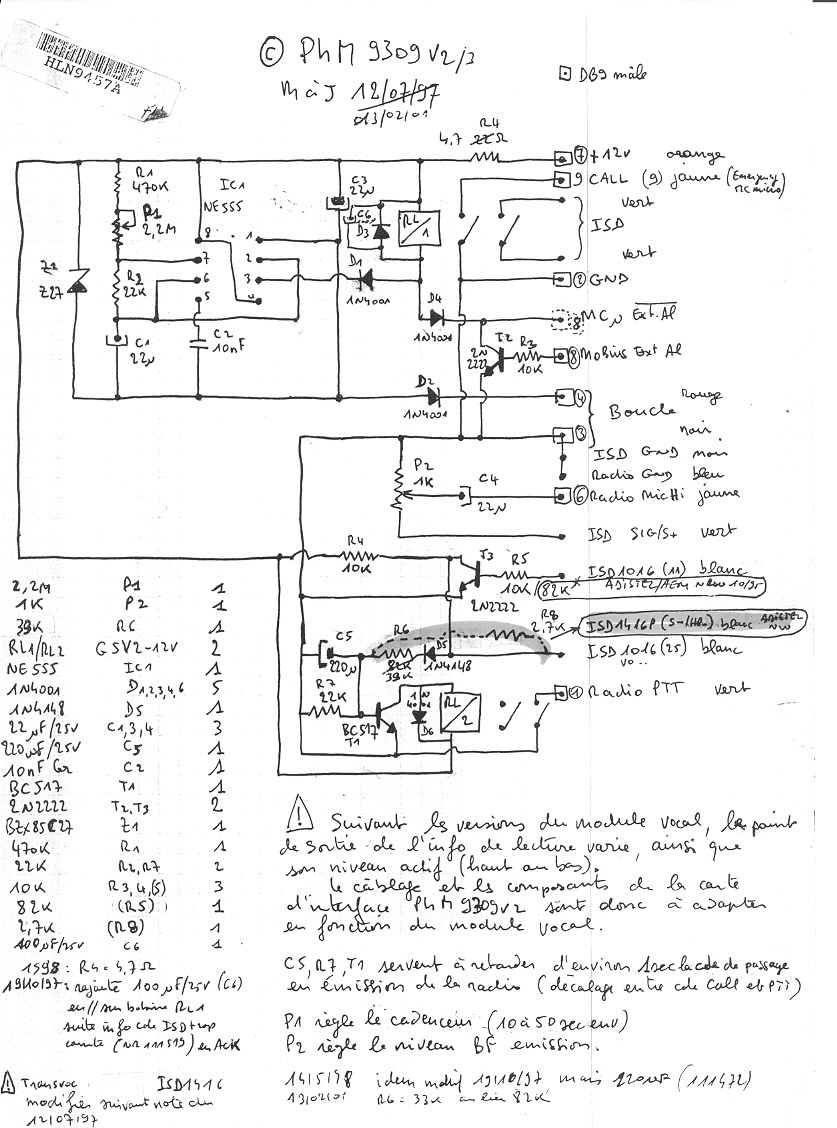 HLN9457A
© PhM 9309 V2/3
MàJ 12/07/97
13/02/01
DB9 mâle
R4
4,7 22Ω
7 +12V orange
9 CALL (9) jaune (Emergency
vert
ISD
vert
2 GND
8 Ext. Al
8 Mobius Ext Al
4 Rouge
Boucle
3 noir
ISD GND noir
Radio GND bleu
6 Radio MicHi jaune
ISD SIG/S+ vert
ISD1016 (11) blanc
82K
ISD1416P blanc
ISD 1016 (25) blanc
1 Radio PTT vert
R1
470K
P1
2,2M
IC1
NE555
C3
22µ
C6
D3
RL
1
Z1
Z27
R2
22K
8 1
7 2
6 3
5 4
D1
1N4001
C1
22µ
C2
10nF
D4
1N4001
T2
2N
2222
R3
10K
D2
1N4001
P2
1K
C4
22µ
R4
10K
T3
2N2222
R5
10K
R8
2,7K
C5
220µ
R6
82K
39K
D5
1N4148
R7
22K
BC517
T1
D6
RL
2
2,2M P1 1
1K P2 1
39K R6 1
RL1/RL2 G5V2-12V 2
NE555 IC1 1
1N4001 D1,2,3,4,6 5
1N4148 D5 1
22µF/25V C1,3,4 3
220µF/25V C5 1
10nF C2 1
BC517 T1 1
2N2222 T2,T3 2
BZX85C27 Z1 1
470K R1 1
22K R2,R7 2
10K R3,4,(5) 3
82K (R5) 1
2,7K (R8) 1
100µF/25V C6 1
1998 : R4 = 4,7Ω
19/10/97 : rajouté 100µF/25V (C6)
en // sur bobine RL1
suite info cde ISD trop
courte (NR111519) en Ack
⚠ Transvoc ISD1416
modifier suivant note du
12/07/97
⚠ Suivant les versions du module vocal, le point
de sortie de l'info de lecture varie, ainsi que
son niveau actif (haut ou bas).
Le câblage et les composants de la carte
d'interface PhM 9309V2 sont donc à adapter
en fonction du module vocal.
C5, R7, T1 servent à retarder d'environ 1sec la cde de passage
en émission de la radio (décalage entre cde Call et PTT)
P1 règle le cadenceur (10 à 50 sec env)
P2 règle le niveau BF emission.
14/5/98 idem motif 19/10/97 mais 220µF (111472)
13/02/01 R6 = 33K au lieu 82K